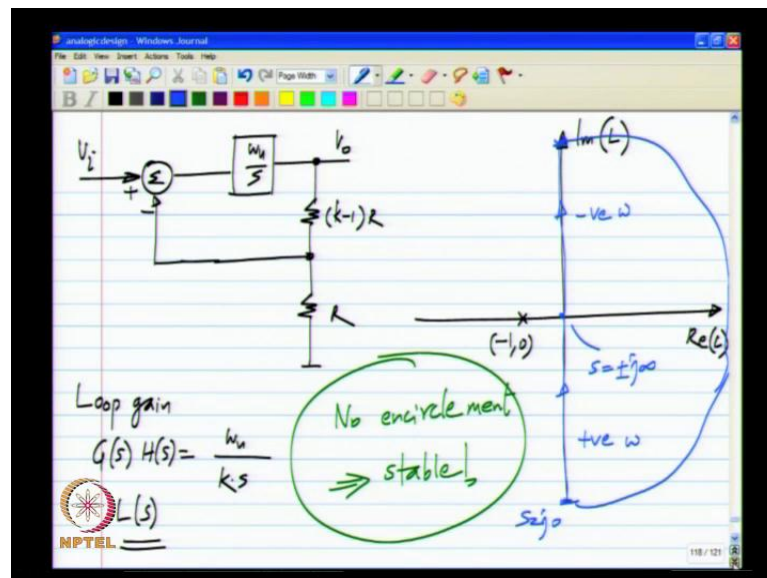 analogicdesign - Windows Journal
File Edit View Insert Actions Tools Help
Page Width
B I
Vi
+
-
Σ
ωu
S
Vo
(k-1)R
R
Im(L)
-ve ω
(-1,0)
Re(L)
s=±j∞
+ve ω
s=j0
Loop gain
G(s) H(s) = ωu
k.s
L(s)
No encirclement
⇒ stable!
NPTEL
118 / 121